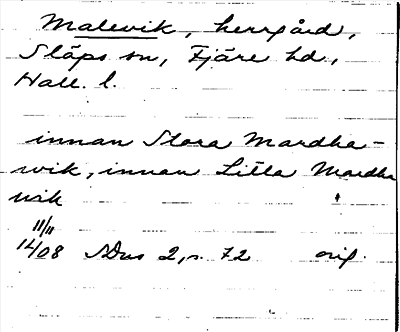 Malevik, herrgård,
Släps sn, Fjäre hd,
Hall. l.
innan Stora Mardha-
vik, innan Lilla Mardha
vik
11/11
14/08 s. 72 orig.